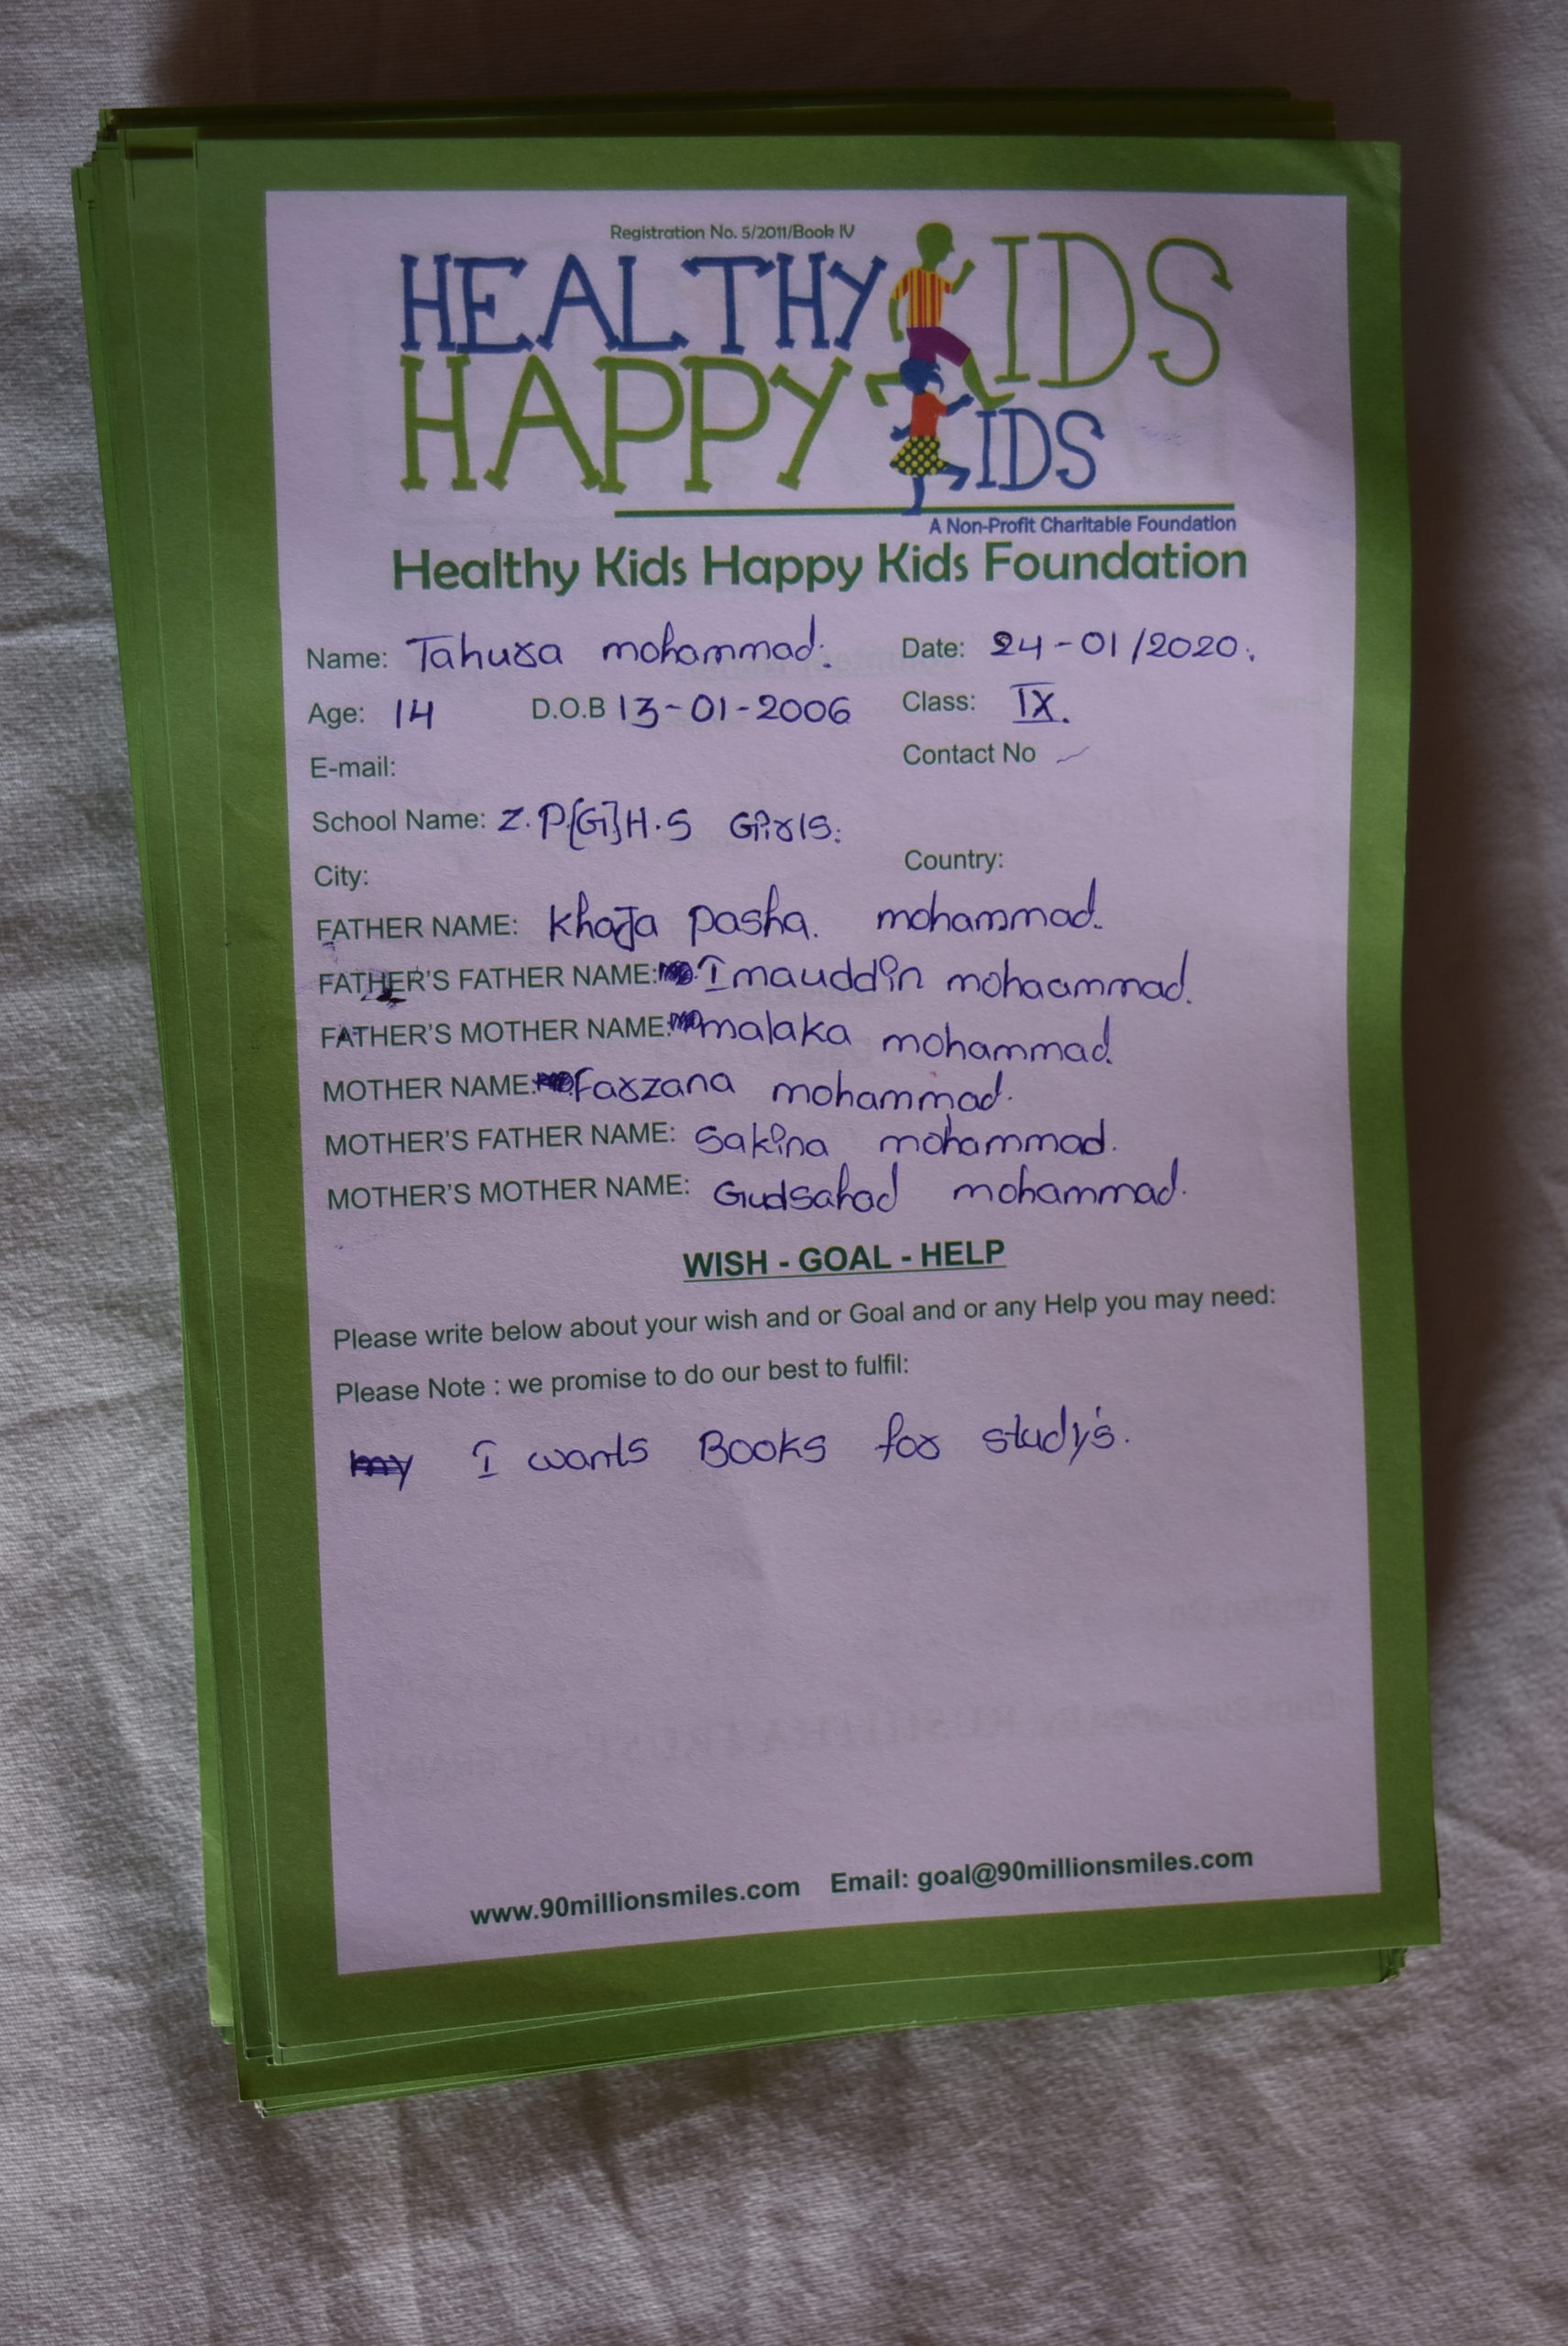 Registration No. 5/2011/Book IV
HEALTHY KIDS
HAPPY KIDS
A Non-Profit Charitable Foundation
Healthy Kids Happy Kids Foundation
Name: Tahura mohammad. Date: 24-01/2020.
Age: 14 D.O.B 13-01-2006 Class: IX.
E-mail: Contact No
School Name: Z.P[G]H.S Girls.
City: Country:
FATHER NAME: Khaja pasha. mohammad.
FATHER'S FATHER NAME: Imauddin mohaammad.
FATHER'S MOTHER NAME: malaka mohammad.
MOTHER NAME: Farzana mohammad.
MOTHER'S FATHER NAME: Sakina mohammad.
MOTHER'S MOTHER NAME: Gudsahad mohammad.
WISH - GOAL - HELP
Please write below about your wish and or Goal and or any Help you may need:
Please Note : we promise to do our best to fulfil:
my I wants Books for study's.
www.90millionsmiles.com Email: goal@90millionsmiles.com